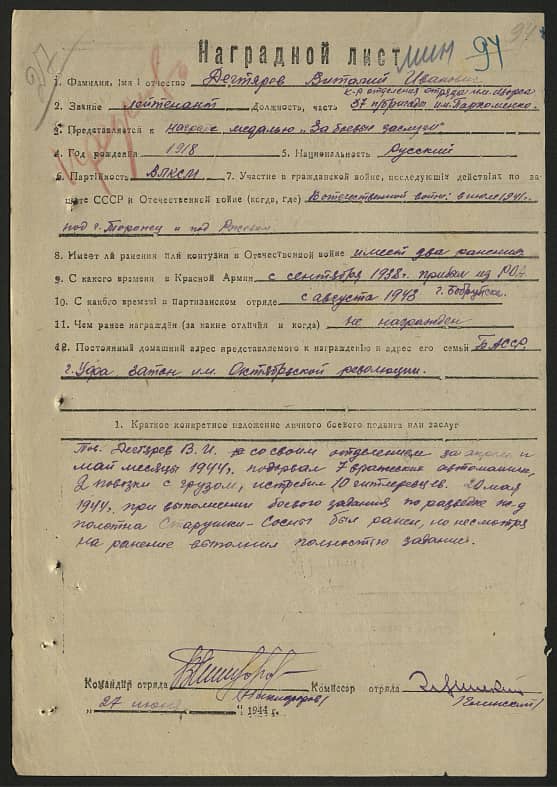 97
Наградной лист
1. Фамилия, имя и отчество Дегтярев Виталий Иванович
к-р отделения отряда им.
2. Звание лейтенант Должность, часть 37 п/бригады им. Пархоменко
3. Представляется к награде медалью „За боевые заслуги"
4. Год рождения 1918 5. Национальность Русский
6. Партийность ВЛКСМ 7. Участие в гражданской войне, последующих действиях по за-
щите СССР и Отечественной войне (когда, где) В отечественной войне: в июле 1941г.
под г. и под
8. Имеет ли ранения или контузии в Отечественной войне имеет два ранения
9. С какого времени в Красной Армии с сентября 1938г. прибыл из РОА
10. С какого времени в партизанском отряде с августа 1943 г. Бобруйска.
11. Чем ранее награжден (за какие отличия и когда) не награжден
12. Постоянный домашний адрес представляемого к награждению и адрес его семьи БАССР,
г. Уфа затон им. Октябрьской революции.
1. Краткое конкретное изложение личного боевого подвига или заслуг
Тов. Дегтярев В. И. со своим отделением за и
май месяцы 1944г. подорвал 7 вражеских автомашин,
2 повозки с грузом, истребил 10 гитлеровцев. 20 мая
1944г. при выполнении боевого задания по разведке ж.д
полотна Старушки-Сосны был ранен, но несмотря
на ранение выполнил полностью задание.
Командир отряда Комиссар отряда
/Никифоров/
„27 июня" 1944 г.